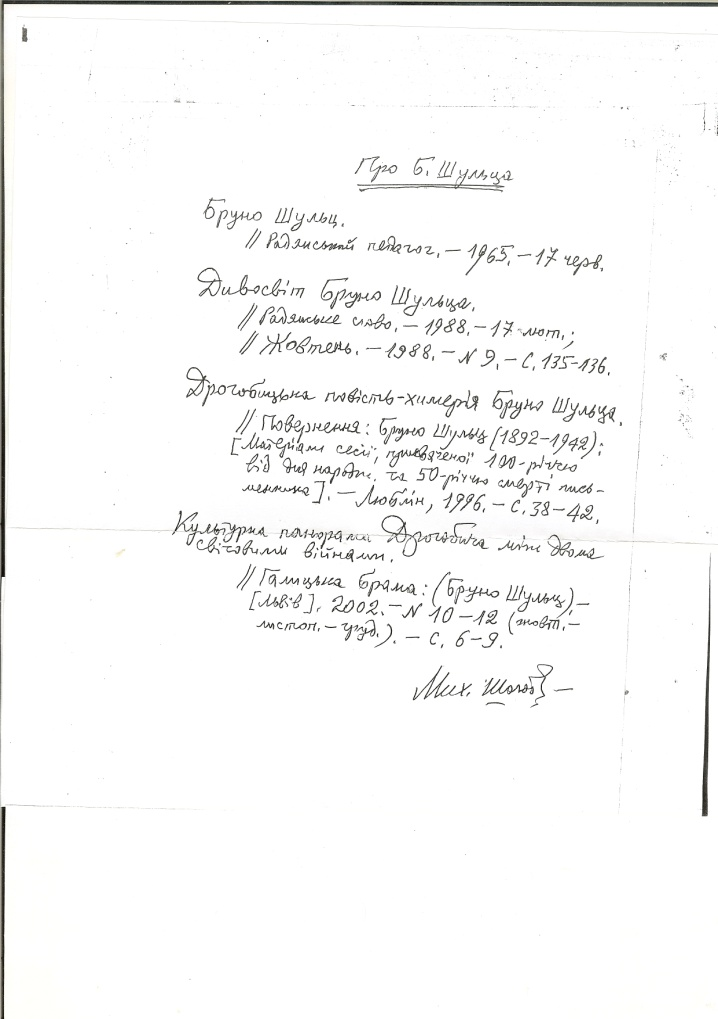 Про Б. Шульца
Бруно Шульц.
// Радянський педагог. – 1965. – 17 черв.
Дивосвіт Бруно Шульца.
// Радянське слово. – 1988. – 17 лют.;
// Жовтень. – 1988. – N 9. – С. 135–136.
Дрогобицька повість-химерія Бруно Шульца.
// Повернення: Бруно Шульц (1892–1942):
[Матеріали сесії, присвяченої 100-річчю
від дня народж. та 50-річчю смерті пись-
менника]. – Люблін, 1996. – С. 38–42.
Культурна панорама Дрогобича між двома
світовими війнами.
// Галицька брама: (Бруно Шульц). –
[Львів]. 2002. – N 10–12 (жовт. –
листоп. – груд.). – С. 6–9.
Мих.